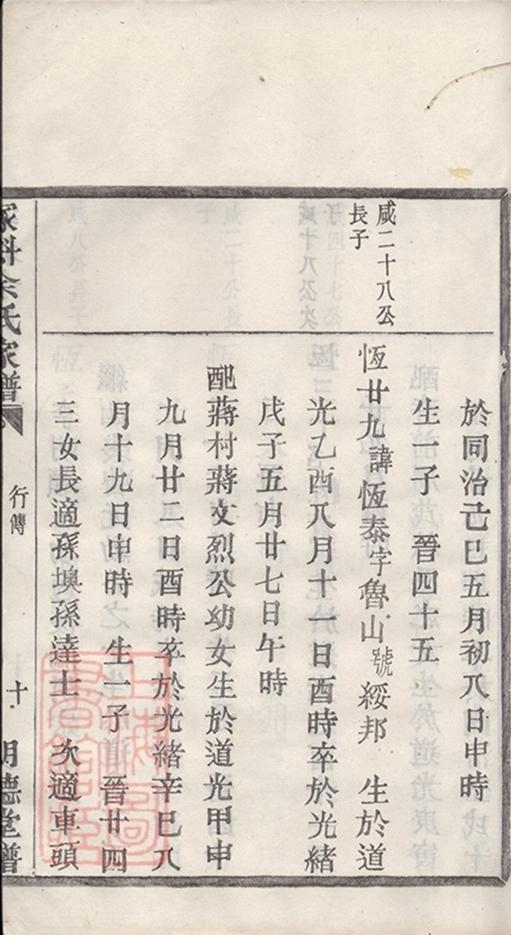 於同治己巳五月初八日申時
生一子 晉四十五
咸二十八公
長子
恆廿九諱恆泰字魯山號綏邦 生於道
光乙酉八月十一日酉時卒於光緒
戊子五月廿七日午時
配蔣村蔣文烈公幼女生於道光甲申
九月廿二日酉時卒於光緒辛巳八
月十九日申時 生一子 晉廿四
三女長適孫㙪孫達士 次適車頭
余氏家譜
行傳
十
明德堂譜